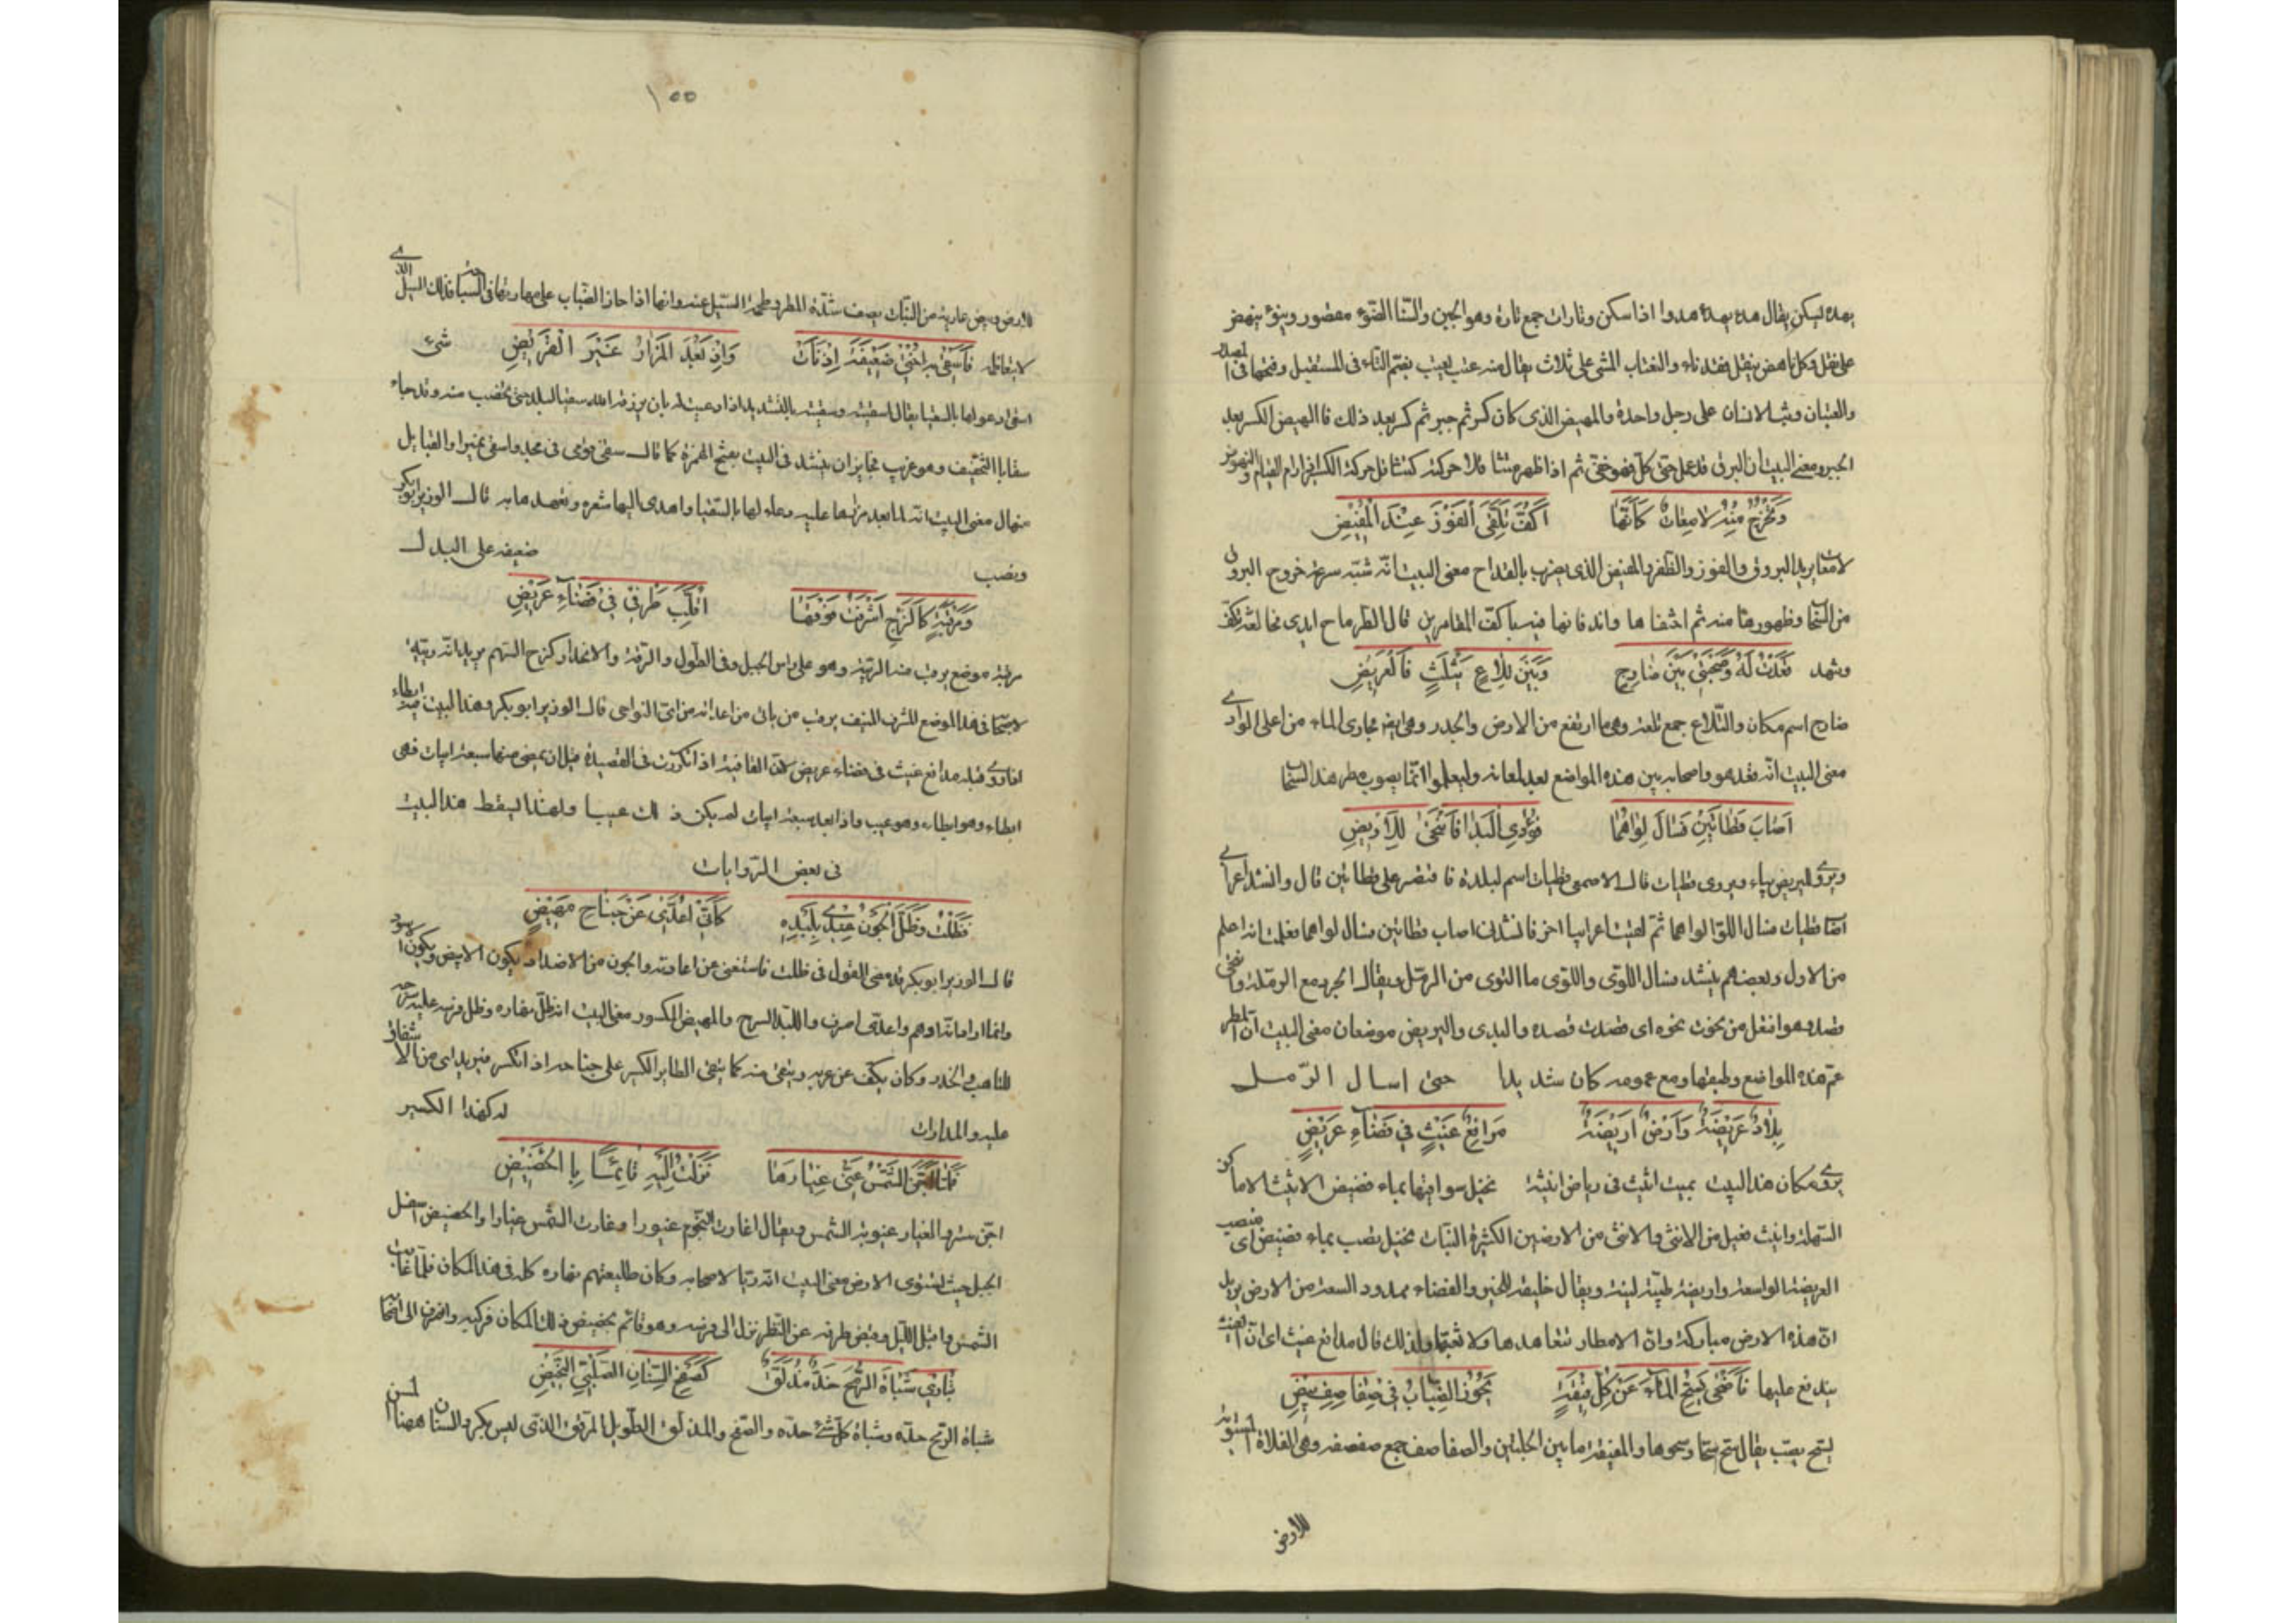 يهدء ليسكن يقال هدء يهدء هدوا اذا سكن وتارات جمع تارة وهو الحين والسنا الضوء مقصور وينوء ينهض
على ثقل وكل ناهض بثقل فقد ناء والتعتاب المشى على ثلاث يقال منه عتب يعتب بضم التاء فى المستقبل وفتحها فى
والعتبان وثب الانسان على رجل واحدة والمهيض الذى كان كسر ثم جبر ثم كسر بعد ذلك فالهيض الكسر بعد
الجبر ومعنى البيت ان البرق قد عمل حتى كل فهو خفى ثم اذا ظهر منتشا فلا حركته كتثاقل حركة الكسير اذا رام القيام والنهوض
وَتَخْرُجُ مِنْهُ لَامِعَاتٌ كَأَنَّهَا أَكُفٌّ تَلَقَّى الفَوْزَ عِنْدَ الْمُفِيْضِ
لامعات يريد البروق والفوز والظفر والمفيض الذى يضرب بالقداح معنى البيت انه شبه سرعة خروج البروق
من السحاب وظهورها منه ثم اختفاها واندفانها فيه باكف المقامرين قال الطرماح ايدى مخالعة تكف
وتنهد قَعَدْتُ لَهُ وَصُحْبَتِيْ بَيْنَ ضَارِجٍ وَبَيْنَ تِلَاعِ يَثْلَثٍ فَالْعَرِيْضِ
ضارج اسم مكان والتلاع جمع تلعة وهى ما ارتفع من الارض وانحدر وهى ايضا مجارى الماء من اعلى الوادى
معنى البيت انه قعد هو واصحابه بين هذه المواضع لعد لمعانه وليعلموا انما يصوب مطر هذا السحاب
اَصَابَ قَطَاتَيْنِ فَسَالَ لِوَاهُمَا فَوَادِى الْبَدِيِّ فَانْتَحَى لِلْأَرِيْضِ
ويروى لليريض بياء ويروى قطيات قال الاصمعى قطيات اسم لبلدة فاقتصر على قطاتين قال وانشد اعرابى
اصاب قطيات فسال اللوى لواهما ثم لقيت اعرابيا اخر فانشدنى اصاب قطاتين فسال لواهما فعلمت انه اعلم
من الاول وبعضهم ينشد فسال اللوى واللوى ما التوى من الرمل ويقال الجرد مع الرملة وانتحى
قصد وهو افتعل من نحوت نحوه اى قصدت قصده والبدى واليريض موضعان معنى البيت ان المطر
عم هذه المواضع وطبقها ومع عمومه كان شديدا حتى اسال الرمل
بِلَادٌ عَرِيْضَةٌ وَاَرْضٌ اَرِيْضَةٌ مَدَافِعُ غَيْثٍ فِي فَضَاءٍ عَرِيْضٍ
يروى مكان هذا البيت بميث انيث فى رياض انيثة تحيل سواقيها بماء فضيض الانيث الاماكن
السهلة وانيث فعيل من الانثى والانثى من الارضين الكثيرة النبات تحيل تصب بماء فضيض اى منصب
العريضة الواسعة واريضة طيبة لينة ويقال خليقة للخير والفضاء ممدود السعة من الارض يريد
ان هذه الارض مباركة وان الامطار تتعاهدها ولا تغبها ولذلك قال مدافع غيث اى ان الغيث
يندفع عليها فَأَضْحَى يَسُحُّ الْمَاءَ عَنْ كُلِّ فِيْقَةٍ يَحُوْزُ الضِّبَابَ فِيْ صَفَاصِفِ بِيْضِ
يسح يصب يقال سح سحا وسحوحا والفيقة ما بين الحلبتين والصفاصف جمع صفصفه وهى الفلاة المستوية
للارض
١٥٥
للارض وبيض عارية من النبات يصف شدة المطر وطمو السيل عنه وانها اذا حاز الضباب على مهارتها فى السباحة فذلك السيل الذى
لا يفاتله فَأَسْقَى بِهِ اُخْتِيْ ضَعِيْفَةَ اِذْ نَأَتْ وَاِذْ بَعُدَ الْمَزَارُ غَيْرَ الْقَرِيْضِ شىء
اسقى دعو لها بالسقيا يقال اسقيته وسقيته بالتشديد اذا دعيت له بان يرزقه الله سقيا لبلده حتى يخصب منه وقد جاء
سقا بالتخفيف وهو غريب فجايز ان ينشد فى البيت بفتح الهمزة كما قال سقى قومى بنى مجد واسقى نميرا والقبايل
من هلال معنى البيت انه لما بعد مزارها عليه دعا لها بالسقيا واهدى اليها شعره وتعهدها به قال الوزير ابو بكر
وينصب ضعيفه على البدل
وَمَرْقَبَةٍ كَالزُّجِّ اَشْرَفْتُ فَوْقَهَا اُقَلِّبُ طَرْفِيْ فِيْ فَضَاءٍ عَرِيْضِ
مرقبة موضع يرقب منه الرقبة وهو على راس الجبل وفى الطول والرقة والانحدار كزج السهم يريد انه ربيئة
لاصحابه فى هذا الموضع المشرف المنيف يرقب من ياتى من اعدائه من اى النواحى قال الوزير ابو بكر وهذا البيت فيه ايطاء
اذا روى قبله مدافع غيث فى فضاء عريض لان القافية اذا تكررت فى القصيدة قبل ان يمضى منها سبعة ابيات فهى
ايطاء وهو ايطاء وهو عيب واذا بعد سبعة ابيات لم يكن ذلك عيبا ولهذا ليسقط هذا البيت
فى بعض الروايات
فَظَلْتُ وَظَلَّ الْجَوْنُ عِنْدِيْ بِلِبْدِهِ كَاَنِّيْ اُعَدِّيْ عَنْ جَنَاحٍ مَهِيْضٍ
قال الوزير ابو بكر قد مضى القول فى ظلت فاستغنى عن اعادته والجون من الاضداد يكون الابيض ويكون الاسود
وانما اراد به ادهم واعدى اصرف واللبد السرج والمهيض المكسور معنى البيت انه ظل نهاره وظل فرسه عليه سرجه
للتاهب والحذر وكان يكف عن غربه ويتقى منه كما يتقى الطاير الكسير على جناحه اذا انكسر فيريد اى من الاشفاق
عليه والمدارات له كهذا الكسير
فَلَمَّا اَجَنَّ الشَّمْسَ عَنِّيْ غِيَارُهَا نَزَلْتُ اِلَيْهِ قَائِمًا بِالْحَضِيْضِ
اجن ستر والغيار غيوبة الشمس ويقال اغارت النجوم غيورا وغارت الشمس غيارا والحضيض اسفل
الجبل حيث تستوى الارض معنى البيت انه ربيا لاصحابه وكان طليعتهم نهاره كله فى هذا المكان فلما غابت
الشمس واقبل الليل وقبض طرفه عن النظر نزل الى فرسه وهو قائم بحضيض ذلك المكان فركبه وانصرف الى اصحابه
يُبَارِيْ شَبَاةَ الرُّمْحِ خَدٌّ مُذَلَّقٌ كَصَفْحِ السِّنَانِ الصُّلَّبِيِّ النَّحِيْضِ
شباة الرمح حده وشباة كل شئ حده والصفح والمذلق الطويل المرقق الذى ليس بكز والسنان ههنا المسن